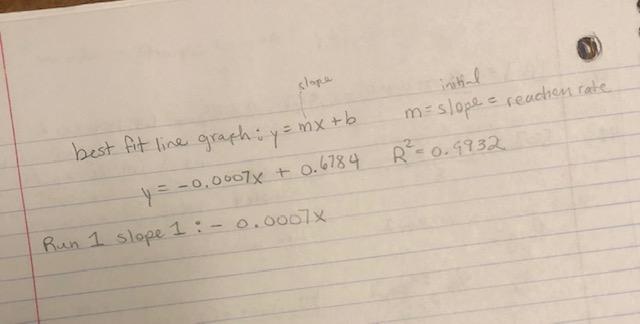 slope
initial
best fit line graph: y = mx + b
m = slope = reaction rate
y = -0.0007x + 0.6784 R² = 0.9932
Run 1 slope 1: - 0.0007x